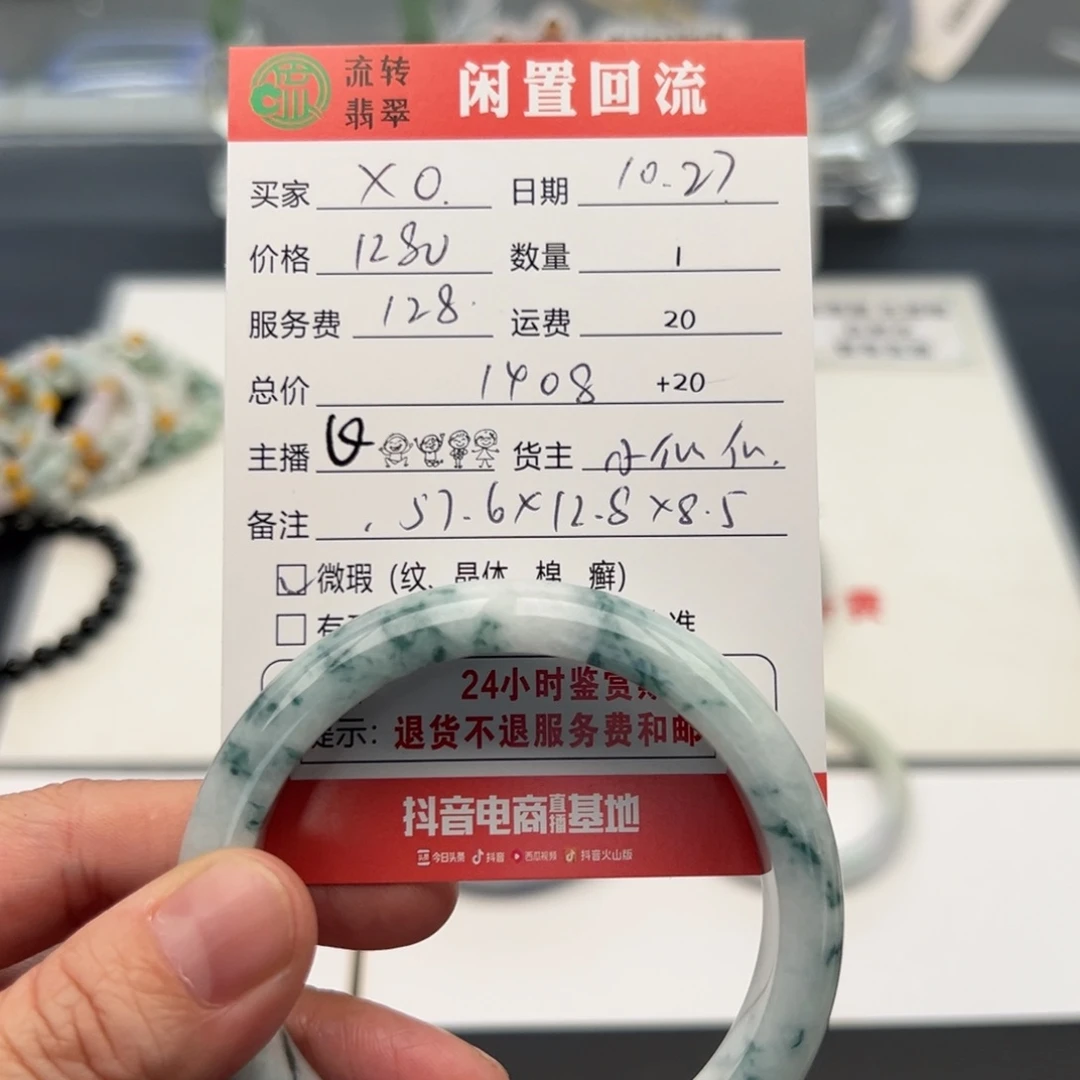 流转
翡翠
闲置回流
买家 XO. 日期 10.27
价格 1280 数量 1
服务费 128. 运费 20
总价 1408 +20
主播 货主
备注 57.6×12.8×8.5
微瑕（纹、晶体、棉、癣）
准
24小时鉴赏
提示：退货不退服务费和邮
抖音电商直播基地
今日头条 抖音 西瓜视频 抖音火山版